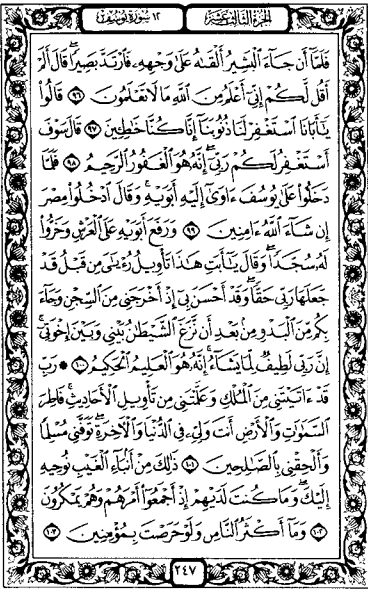 الجزء الثالث عشر ١٢ سورة يوسف
فَلَمَّآ أَن جَآءَ ٱلْبَشِيرُ أَلْقَىٰهُ عَلَىٰ وَجْهِهِۦ فَٱرْتَدَّ بَصِيرًاۖ قَالَ أَلَمْ
أَقُل لَّكُمْ إِنِّىٓ أَعْلَمُ مِنَ ٱللَّهِ مَا لَا تَعْلَمُونَ ٩٦ قَالُوا۟
يَـٰٓأَبَانَا ٱسْتَغْفِرْ لَنَا ذُنُوبَنَآ إِنَّا كُنَّا خَـٰطِـِٔينَ ٩٧ قَالَ سَوْفَ
أَسْتَغْفِرُ لَكُمْ رَبِّىٓۖ إِنَّهُۥ هُوَ ٱلْغَفُورُ ٱلرَّحِيمُ ٩٨ فَلَمَّا
دَخَلُوا۟ عَلَىٰ يُوسُفَ ءَاوَىٰٓ إِلَيْهِ أَبَوَيْهِ وَقَالَ ٱدْخُلُوا۟ مِصْرَ
إِن شَآءَ ٱللَّهُ ءَامِنِينَ ٩٩ وَرَفَعَ أَبَوَيْهِ عَلَى ٱلْعَرْشِ وَخَرُّوا۟
لَهُۥ سُجَّدًاۖ وَقَالَ يَـٰٓأَبَتِ هَـٰذَا تَأْوِيلُ رُءْيَـٰىَ مِن قَبْلُ قَدْ
جَعَلَهَا رَبِّى حَقًّاۖ وَقَدْ أَحْسَنَ بِىٓ إِذْ أَخْرَجَنِى مِنَ ٱلسِّجْنِ وَجَآءَ
بِكُم مِّنَ ٱلْبَدْوِ مِنۢ بَعْدِ أَن نَّزَغَ ٱلشَّيْطَـٰنُ بَيْنِى وَبَيْنَ إِخْوَتِىٓۚ
إِنَّ رَبِّى لَطِيفٌ لِّمَا يَشَآءُۚ إِنَّهُۥ هُوَ ٱلْعَلِيمُ ٱلْحَكِيمُ ١٠٠ ۞ رَبِّ
قَدْ ءَاتَيْتَنِى مِنَ ٱلْمُلْكِ وَعَلَّمْتَنِى مِن تَأْوِيلِ ٱلْأَحَادِيثِۚ فَاطِرَ
ٱلسَّمَـٰوَٰتِ وَٱلْأَرْضِ أَنتَ وَلِىِّۦ فِى ٱلدُّنْيَا وَٱلْـَٔاخِرَةِۖ تَوَفَّنِى مُسْلِمًا
وَأَلْحِقْنِى بِٱلصَّـٰلِحِينَ ١٠١ ذَٰلِكَ مِنْ أَنۢبَآءِ ٱلْغَيْبِ نُوحِيهِ
إِلَيْكَۖ وَمَا كُنتَ لَدَيْهِمْ إِذْ أَجْمَعُوٓا۟ أَمْرَهُمْ وَهُمْ يَمْكُرُونَ
١٠٢ وَمَآ أَكْثَرُ ٱلنَّاسِ وَلَوْ حَرَصْتَ بِمُؤْمِنِينَ ١٠٣
٢٤٧